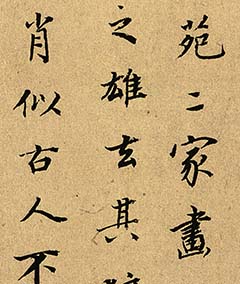 苑二家畫
之雄去其
肖似古人不